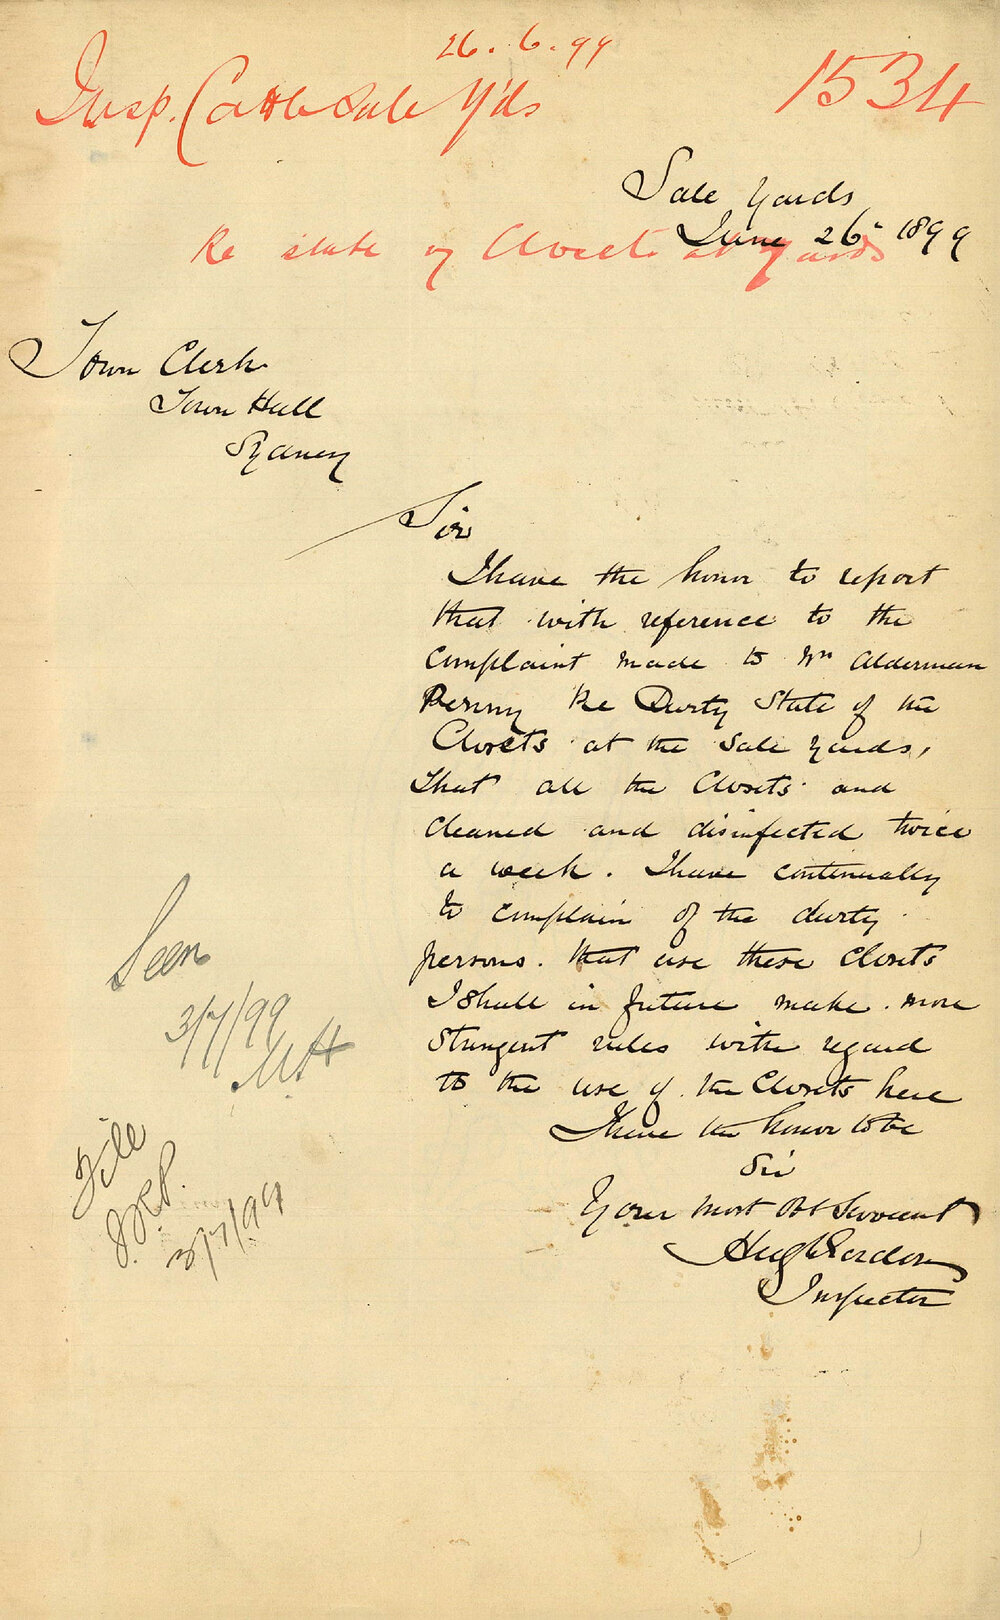 26.6.99
Insp. Cattle Sale Y'ds
1534
Sale Yards
June 26th 1899
Re state of Closets at Yards
Town Clerk
Town Hall
Sydney
Sir
I have the honor to report
that with reference to the
Complaint made to Mr Alderman
Penny Re Durty State of the
Closets at the Sale Yards,
that all the Closets and
cleaned and disinfected twice
a week. I have continually
to complain of the durty
persons. that use these Closets
I shall in future make more
Stringent rules with regard
to the use of the Closets here
I have the honor to be
Sir
Your most Obt Servant
Hugh Gordon
Inspector
Seen
3/7/99
File
3/7/99